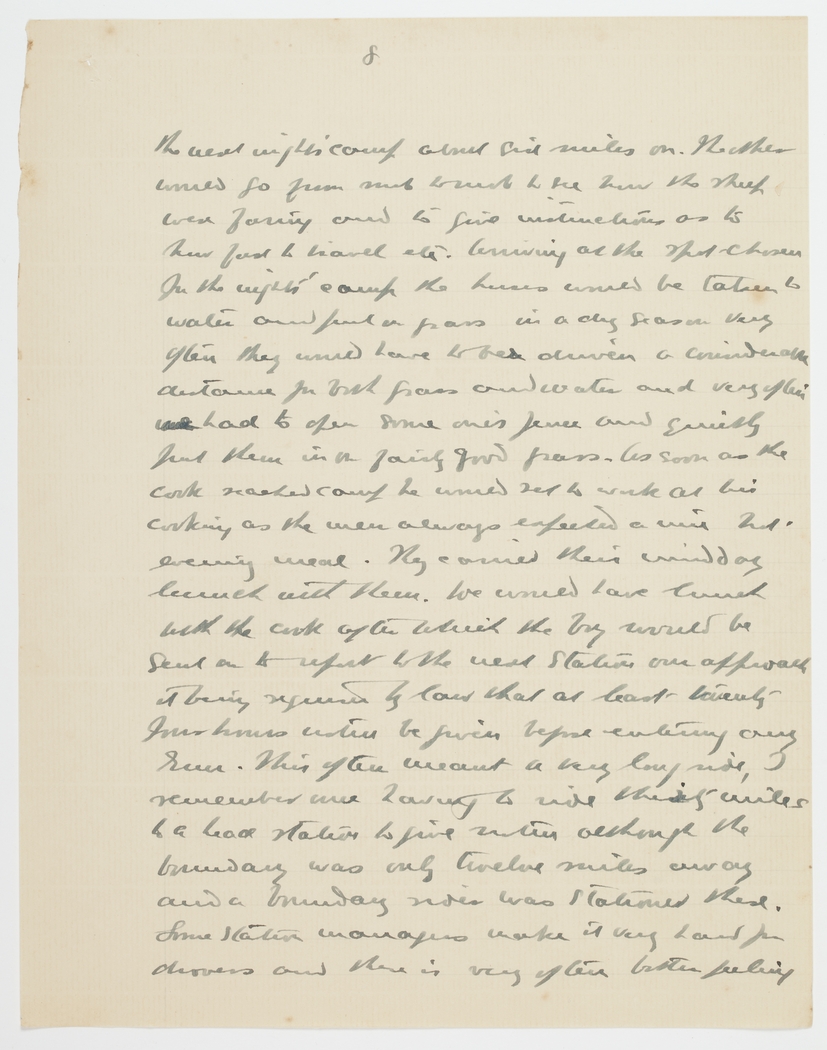 8
the next night's camp about six miles on. The other
would go from mob to mob to see how the sheep
were faring and to give instructions as to
how fast to travel etc. Arriving at the spot chosen
for the nights' camp the horses would be taken to
water and put on grass in a dry season very
often they would have to be driven a considerable
distance for both grass and water and very often
had to open some one's fence and quietly
put them in on fairly good grass. As soon as the
cook reached camp he would set to work at his
cooking as the men always expected a nice hot.
evening meal. They carried their midday
lunch with them. We would have lunch
with the cook after which the boy would be
sent on to report to the next Station our approach
it being required by law that at least twenty
four hours notice be given before entering any
Run. This often meant a very long ride, I
remember one having to ride thirty miles
to a head station to give notice although the
boundary was only twelve miles away
and a boundary rider was stationed there.
Some Station managers make it very hard for
drovers and there is very often bitter feeling